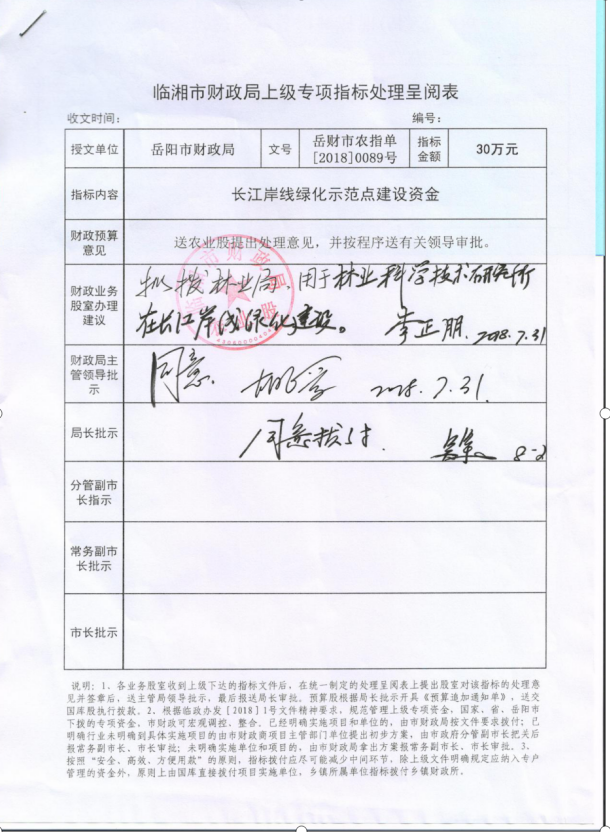 临湘市财政局上级专项指标处理呈阅表
收文时间： 编号：
授文单位 岳阳市财政局 文号 岳财市农指单[2018]0089号 指标金额 30万元
指标内容 长江岸线绿化示范点建设资金
财政预算意见 送农业股提出处理意见，并按程序送有关领导审批。
财政业务股室办理建议
拟拨林业局，用于林业科学技术研究所
在长江岸线绿化建设。 李正朋 2018.7.31
财政局主管领导批示 同意 2018.7.31.
局长批示 同意拨付. 8-2
分管副市长指示
常务副市长批示
市长批示
说明：1、各业务股室收到上级下达的指标文件后，在统一制定的处理呈阅表上提出股室对该指标的处理意
见并签章后，送主管局领导批示，最后报送局长审批。预算股根据局长批示开具《预算追加通知单》，送交
国库股执行拨款。2、根据临政办发［2018］1号文件精神要求，规范管理上级专项资金，国家、省、岳阳市
下拨的专项资金，市财政可宏观调控、整合。已经明确实施项目和单位的，由市财政局按文件要求拨付；已
明确行业未明确到具体实施项目的由市财政商项目主管部门单位提出初步方案，由市政府分管副市长把关后
报常务副市长、市长审批；未明确实施单位和项目的，由市财政局拿出方案报常务副市长、市长审批。3、
按照“安全、高效、方便用款”的原则，指标拨付应尽可能减少中间环节，除上级文件明确规定应纳入专户
管理的资金外，原则上由国库直接拨付项目实施单位，乡镇所属单位指标拨付乡镇财政所。